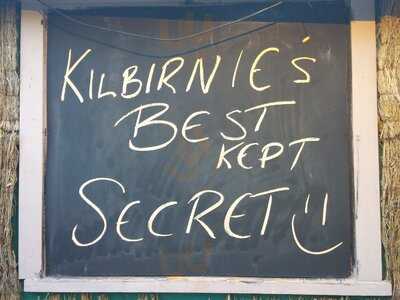 KILBIRNIE's
BEST
KEPT
SECRET!!